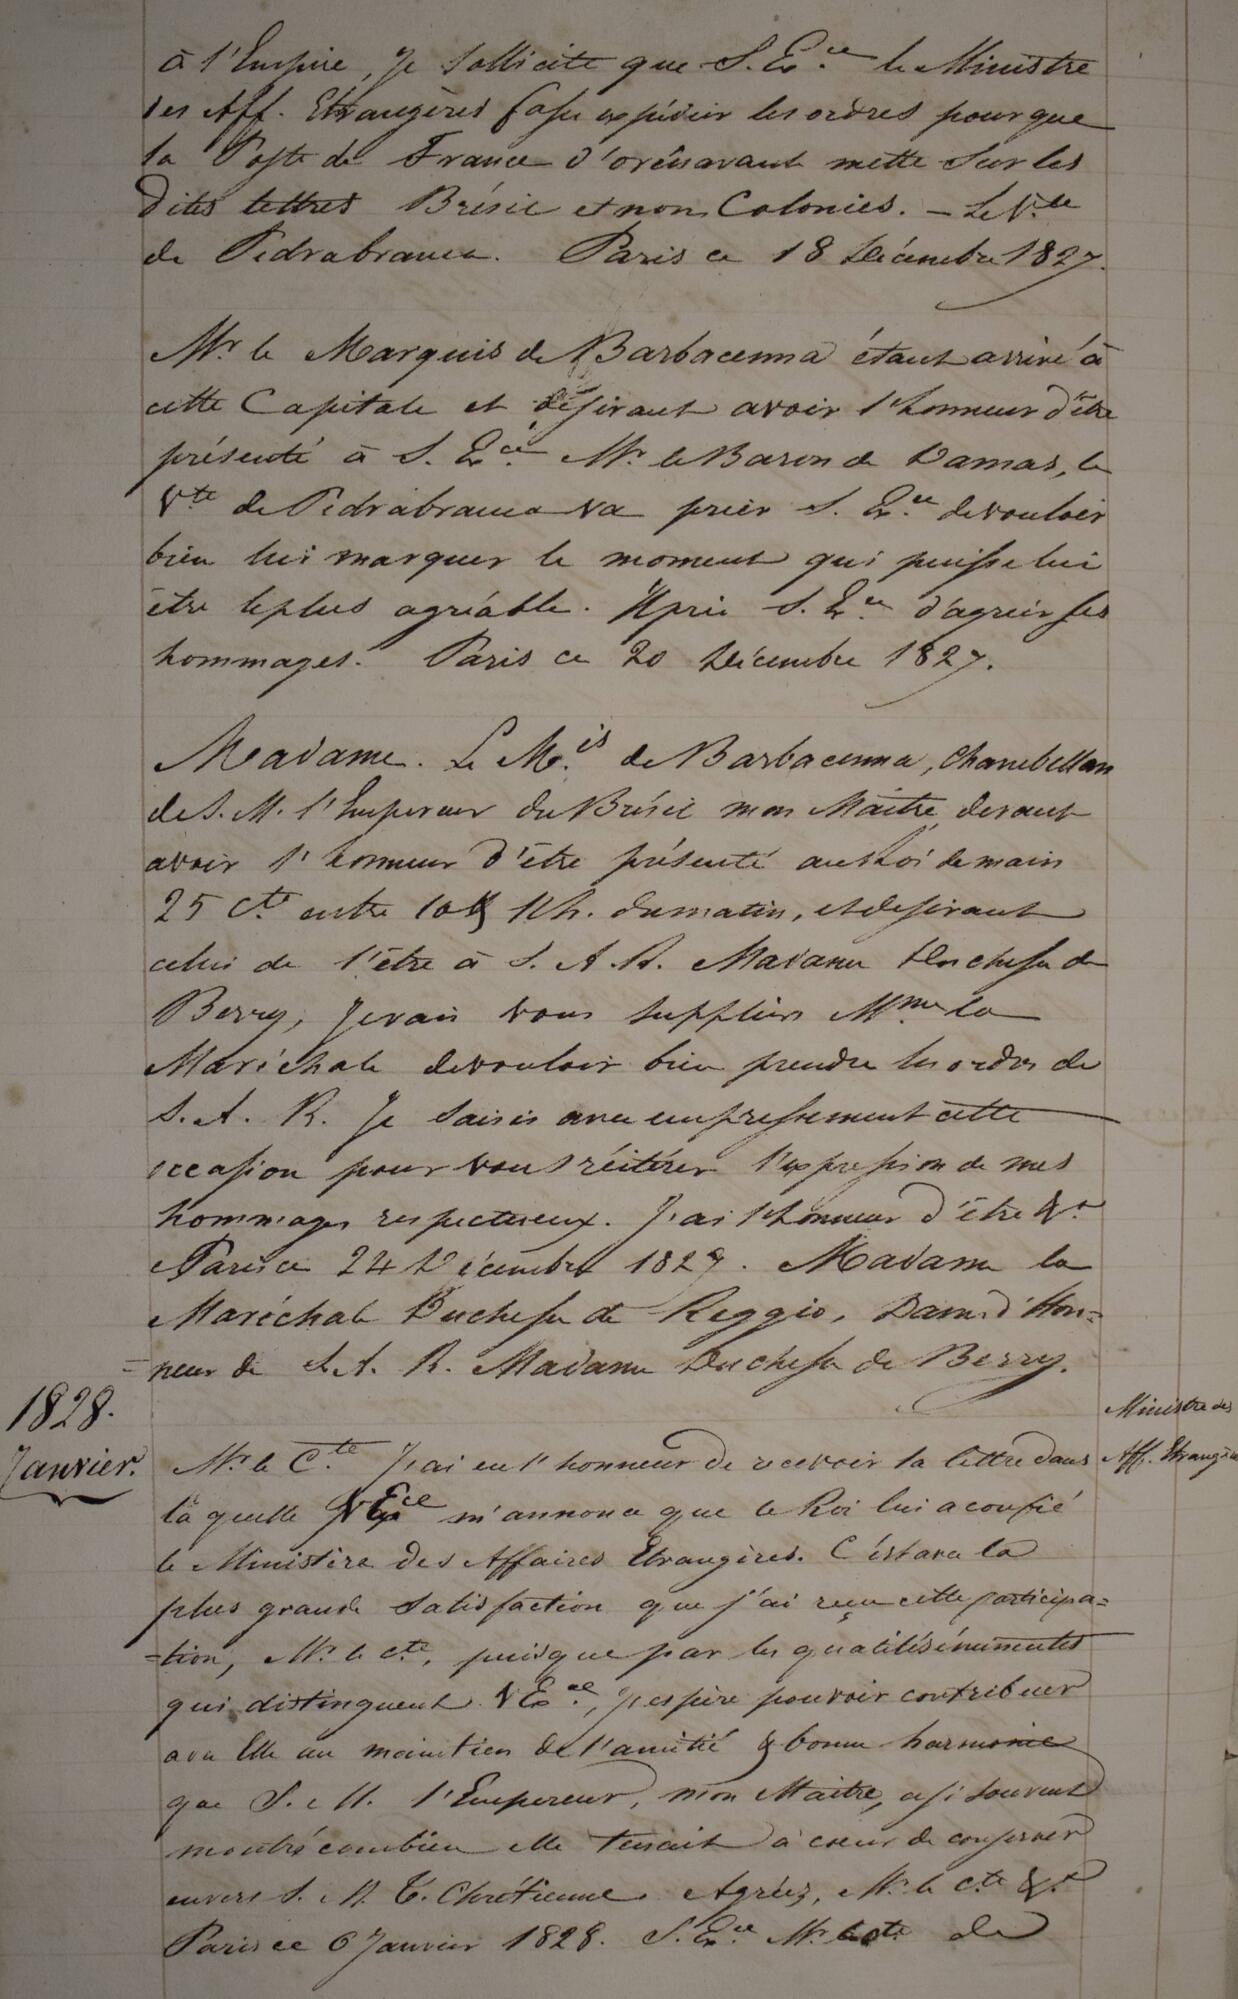 à l'Empire, je sollicite que S. Ex.ce le Ministre
des Aff. Etrangères fasse expédier les ordres pour que
la Poste de France d'orénavant mette sur les
dites lettres Brésil et non Colonies. — Le V.te
de Pedrabranca. Paris ce 18 Décembre 1827.
Mr. le Marquis de Barbacenna étant arrivé à
cette Capitale et désirant avoir l'honneur d'être
présenté à S. Ex.ce Mr. le Baron de Damas, le
V.te de Pedrabranca va prier S. Ex.ce de vouloir
bien lui marquer le moment qui puisse lui
être le plus agréable. Il prie S. Ex.ce d'agréer ses
hommages. Paris ce 20 Décembre 1827.
Madame. Le M.is de Barbacenna, Chambellan
de S. M. l'Empereur du Brésil mon Maitre devant
avoir l'honneur d'être présenté au Roi demain
25 Ct. entre 10 & 11 h. du matin, et desirant
celui de l'être à S. A. R. Madame Duchesse de
Berry, je vais vous supplier Mme la
Maréchale de vouloir bien prendre les ordres de
S. A. R. Je saisis avec empressement cette
occasion pour vous réitérer l'expression de mes
hommages respectueux. J'ai l'honneur d'être &a
Paris ce 24 Décembre 1827. Madame la
Maréchale Duchesse de Reggio, Dame d'Hon=
=neur de S. A. R. Madame Duchesse de Berry.
1828.
Janvier.
Ministre des
Aff. Etrangères
Mr. le C.te J'ai eu l'honneur de recevoir la lettre dans
la quelle V Ex.ce m'annonce que le Roi lui a confié
le Ministère des Affaires Etrangères. C'est avec la
plus grande satisfaction que j'ai reçu cette participa=
=tion, Mr. le C.te, puisque par les qualités éminentes
qui distinguent V Ex.ce, j'espère pouvoir contribuer
avec Elle au maintien de l'amitié & bonne harmonie
que S. M. l'Empereur, mon Maitre, a si souvent
montré combien elle tenait à cœur de conserver
envers S. M. T. Chrétienne. Agréez, Mr. le C.te &a
Paris ce 6 Janvier 1828. S. Ex.ce Mr. le Cte. de